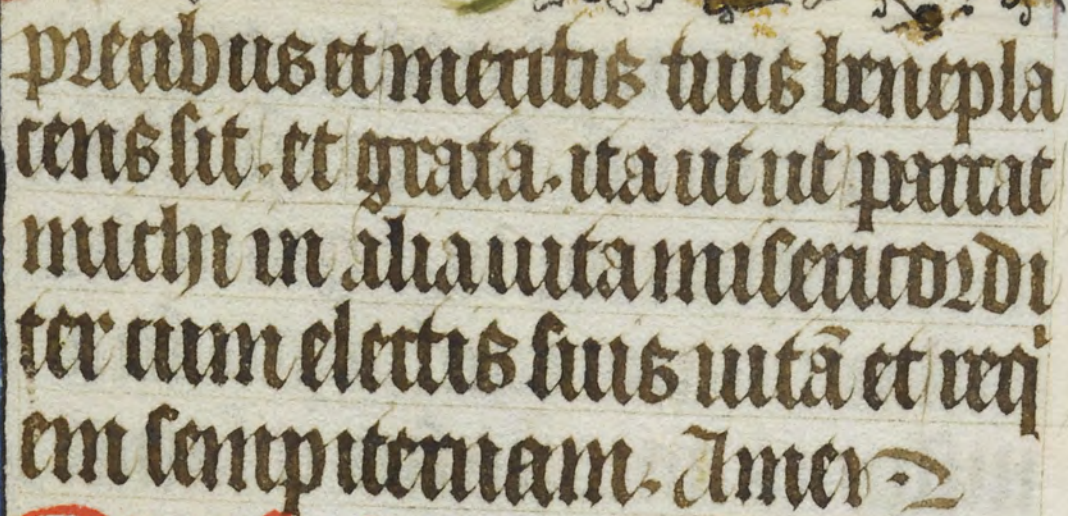 precibus et meritis tuis benepla
cens sit. et grata. ita ut ut parcat
michi in alia uita misericordi
ter cum electis suis uitā et req̇
em sempiternam. Amen